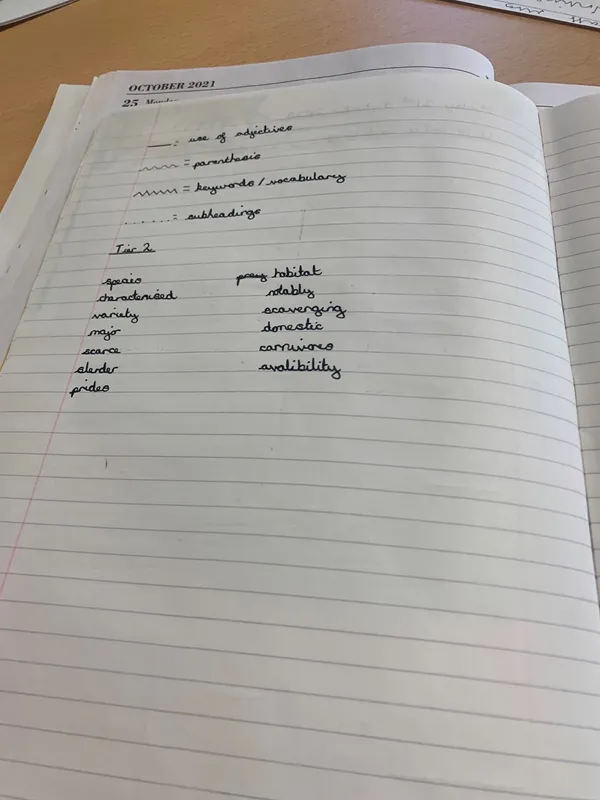 OCTOBER 2021
25 Monday
= use of adjectives
= parenthesis
= keywords / vocabulary
= subheadings
Tier 2
species
characterised
variety
major
scarce
slender
prides
prey habitat
notably
scavenging
domestic
carnivores
avalibility